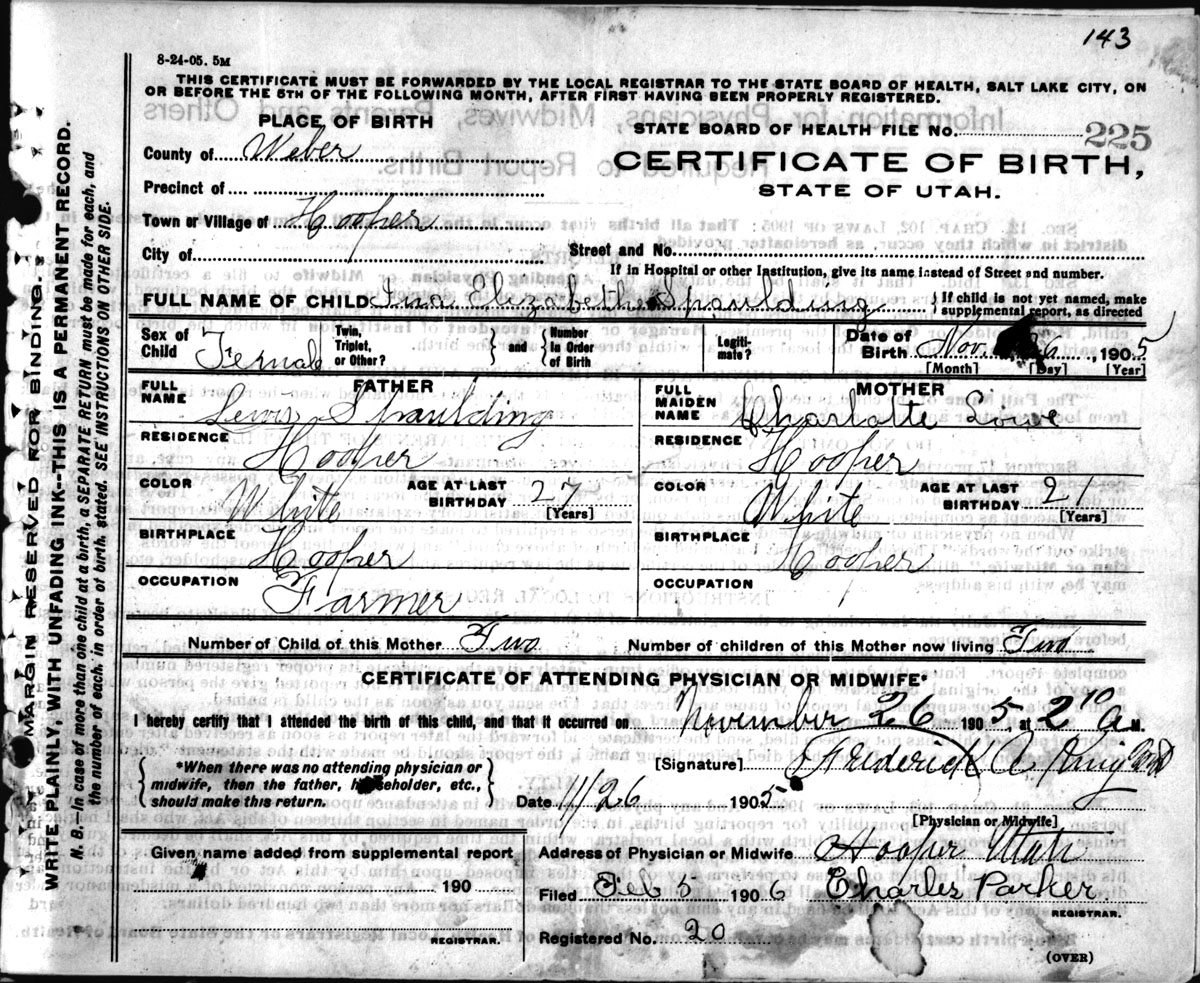 143
8-24-05. 5M
THIS CERTIFICATE MUST BE FORWARDED BY THE LOCAL REGISTRAR TO THE STATE BOARD OF HEALTH, SALT LAKE CITY, ON
OR BEFORE THE 5TH OF THE FOLLOWING MONTH, AFTER FIRST HAVING BEEN PROPERLY REGISTERED.
PLACE OF BIRTH
STATE BOARD OF HEALTH FILE No. 225
County of Weber
CERTIFICATE OF BIRTH,
STATE OF UTAH.
Precinct of
Town or Village of Hooper
City of
Street and No.
If in Hospital or other Institution, give its name instead of Street and number.
FULL NAME OF CHILD Ina Elizabeth Spaulding
} If child is not yet named, make
supplemental report, as directed
Sex of Child Female
Twin, Triplet, or Other? } and { Number In Order of Birth
Legiti-mate?
Date of Birth Nov. 26, 1905
[Month] [Day] [Year]
FATHER
FULL NAME Lewis Spaulding
RESIDENCE Hooper
COLOR White AGE AT LAST BIRTHDAY 27 [Years]
BIRTHPLACE Hooper
OCCUPATION Farmer
MOTHER
FULL MAIDEN NAME Charlotte Lowe
RESIDENCE Hooper
COLOR White AGE AT LAST BIRTHDAY 21 [Years]
BIRTHPLACE Hooper
OCCUPATION
Number of Child of this Mother Two Number of children of this Mother now living Two
CERTIFICATE OF ATTENDING PHYSICIAN OR MIDWIFE*
I hereby certify that I attended the birth of this child, and that it occurred on November 26 1905, at 2 A M.
{ *When there was no attending physician or
midwife, then the father, householder, etc.,
should make this return. }
[Signature] Frederick A
Date 11/26 1905
[Physician or Midwife]
Given name added from supplemental report
190
REGISTRAR.
Address of Physician or Midwife Hooper Utah
Filed Feb 5 1906 Charles Parker.
REGISTRAR.
Registered No. 20
(OVER)
MARGIN RESERVED FOR BINDING.
WRITE PLAINLY, WITH UNFADING INK--THIS IS A PERMANENT RECORD.
N. B.--In case of more than one child at a birth, a SEPARATE RETURN must be made for each, and
the number of each, in order of birth, stated. SEE INSTRUCTIONS ON OTHER SIDE.